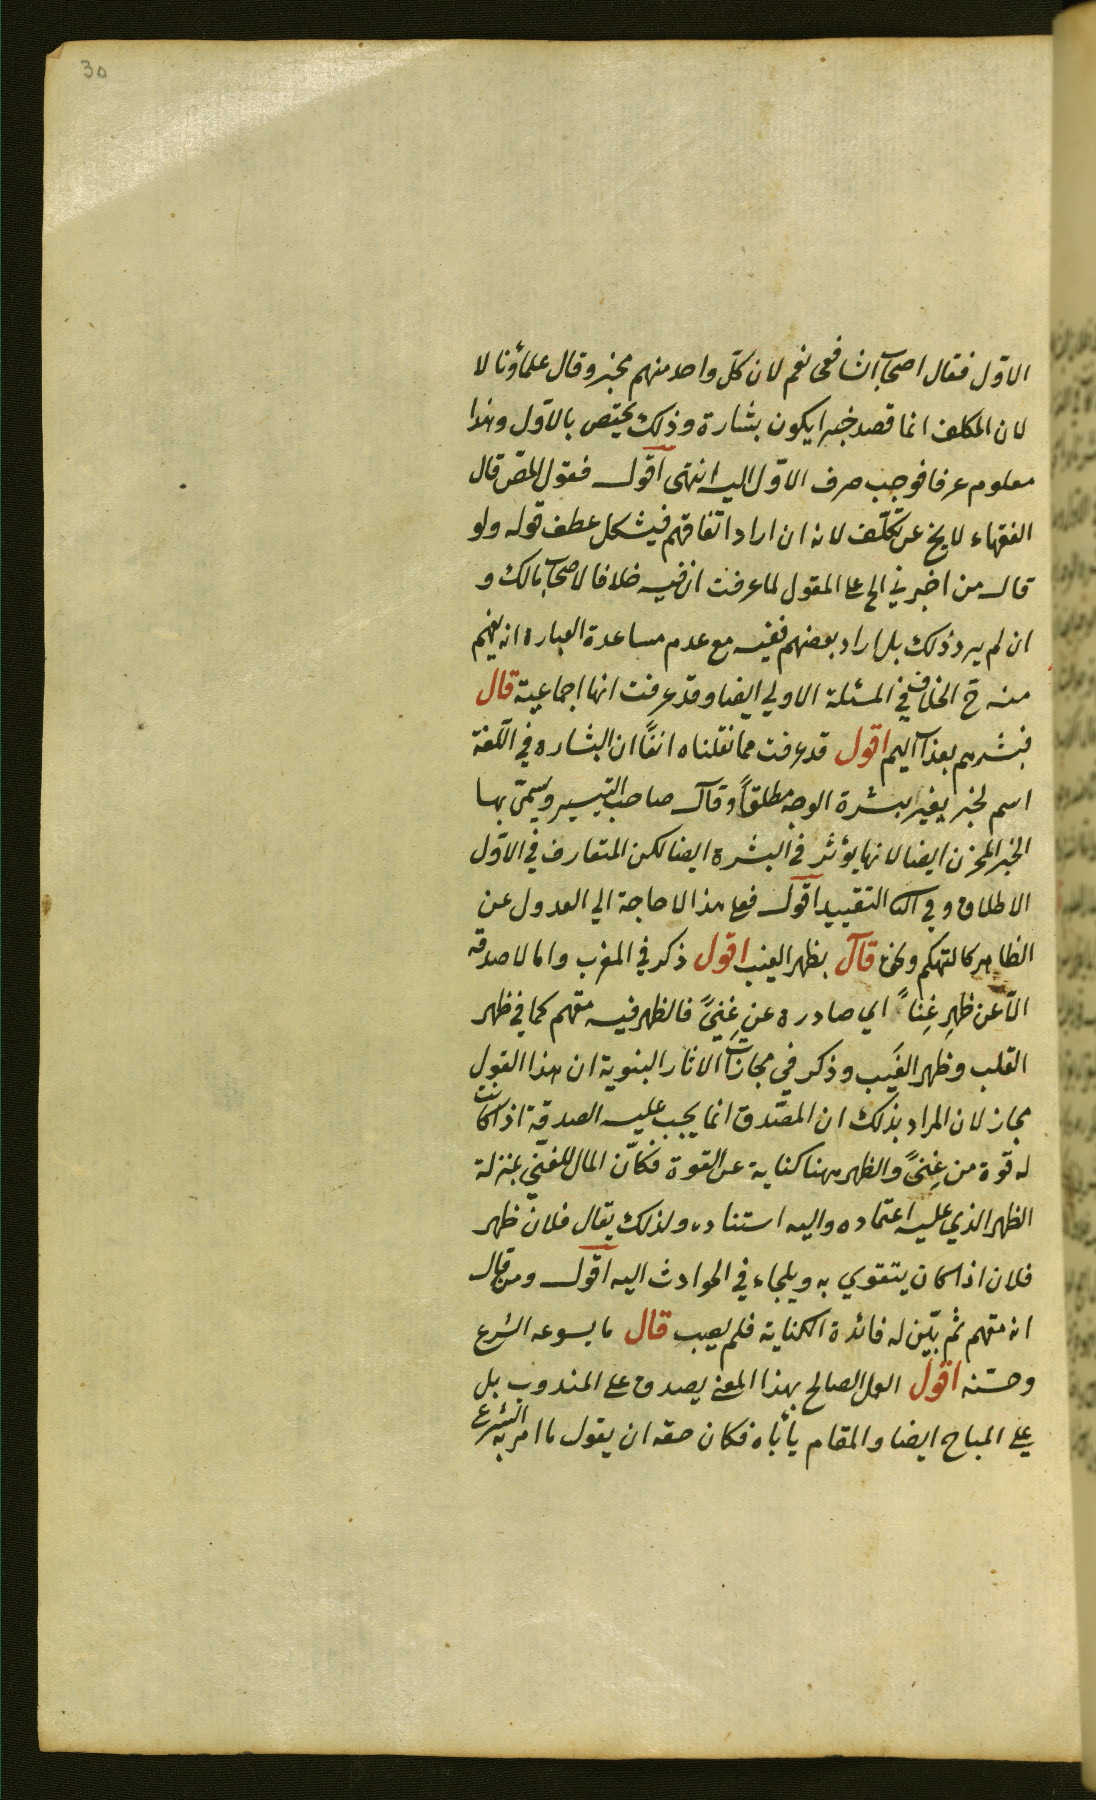 30
الاوّل فقال اصحاب الشافعى نعم لان كلّ واحد منهم مخبر وقال علماؤنا لا
لان المكلف انما قصد خبرا يكون بشارة وذلك يختص بالاول وهذا
معلوم عرفا فوجب صرف الاوّل اليه انتهى اقول فقول المص قال
الفقهاء لا يخ عن تكلّف لانه ان اراد اتفاقهم فيشكل عطف قوله ولو
قال من اخبرني الخ على المقول لما عرفت ان فيه خلافا لاصحاب مالك و
ان لم يرد ذلك بل اراد بعضهم ففيه مع عدم مساعدة العبارة انه يفهم
منه ح الخلاف في المسئلة الاولي ايضا وقد عرفت انها اجماعية قال
فبشرهم بعذاب اليم اقول قد عرفت مما نقلناه انفًا ان البشاره في اللغة
اسم لخبر يغير بشرة الوجه مطلقاً وقال صاحب التيسير وسمّى بها
الخبر المحزن ايضا لانها يؤثر في البشرة ايضا لكن المتعارف في الاوّل
الاطلاق وفي الثا التقييد اقول فعلى هذا لا حاجة الي العدول عن
الظاهر كالتهكم ونحوه قال بظهر الغيب اقول ذكر في المغرب واما لا صدقة
الّا عن ظهرِ غِناً اي صادرة عن غِنيً فالظهر فيه مقحم كما في ظهر
القلب وظهر الغَيب وذكر في مجازات الاثار النبوية ان هذا القول
مجاز لان المراد بذلك ان المصّدق انما يجب عليه الصدقة اذا كانت
له قوة من غِنيً والظهر ههنا كناية عن القوة فكاّن المال للغنّي بمنزلة
الظهر الذي عليه اعتماده واليه استناده ولذلك يقال فلان ظهر
فلان اذا كان يتقوي به ويلجاء في الحوادث اليه اقول ومن قال
انه مقحم ثم بيّن له فائدة الكناية فلم يصب قال ما يسوغه الشرع
وحسّنه اقول العمل الصالح بهذا المعنى يصدق على المندوب بل
على المباح ايضا والمقام يأباه فكان حقه ان يقول ما امر به الشرع